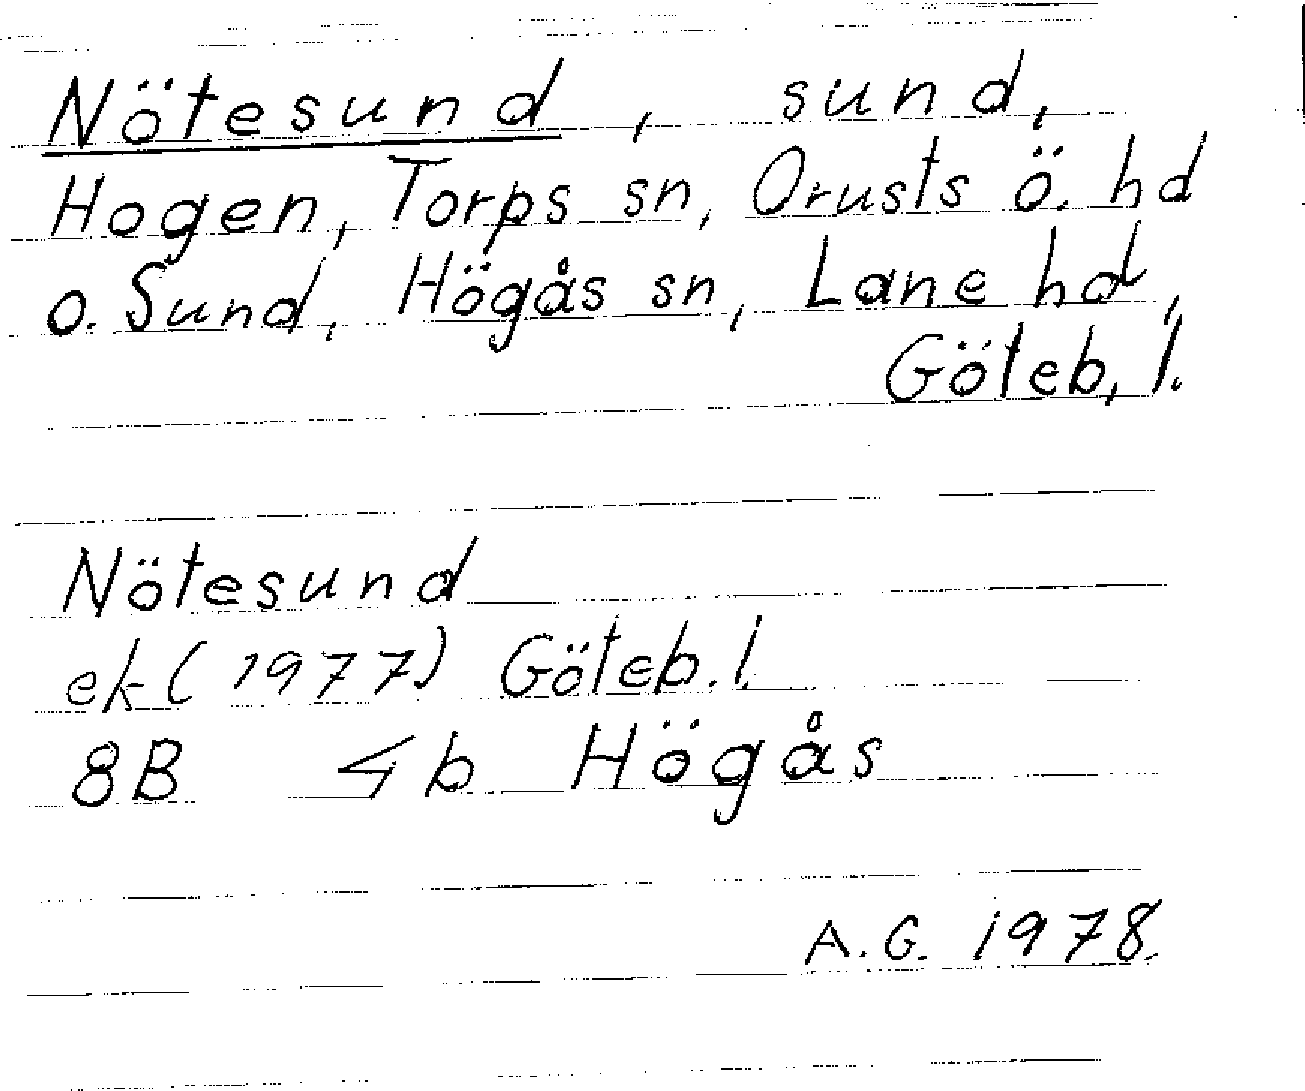 Nötesund, sund,
Hogen, Torps sn, Orusts ö. hd
o. Sund, Högås sn, Lane hd,
Göteb, l.
Nötesund
ek (1977) Göteb. l.
8B 4b Högås
A.G. 1978.